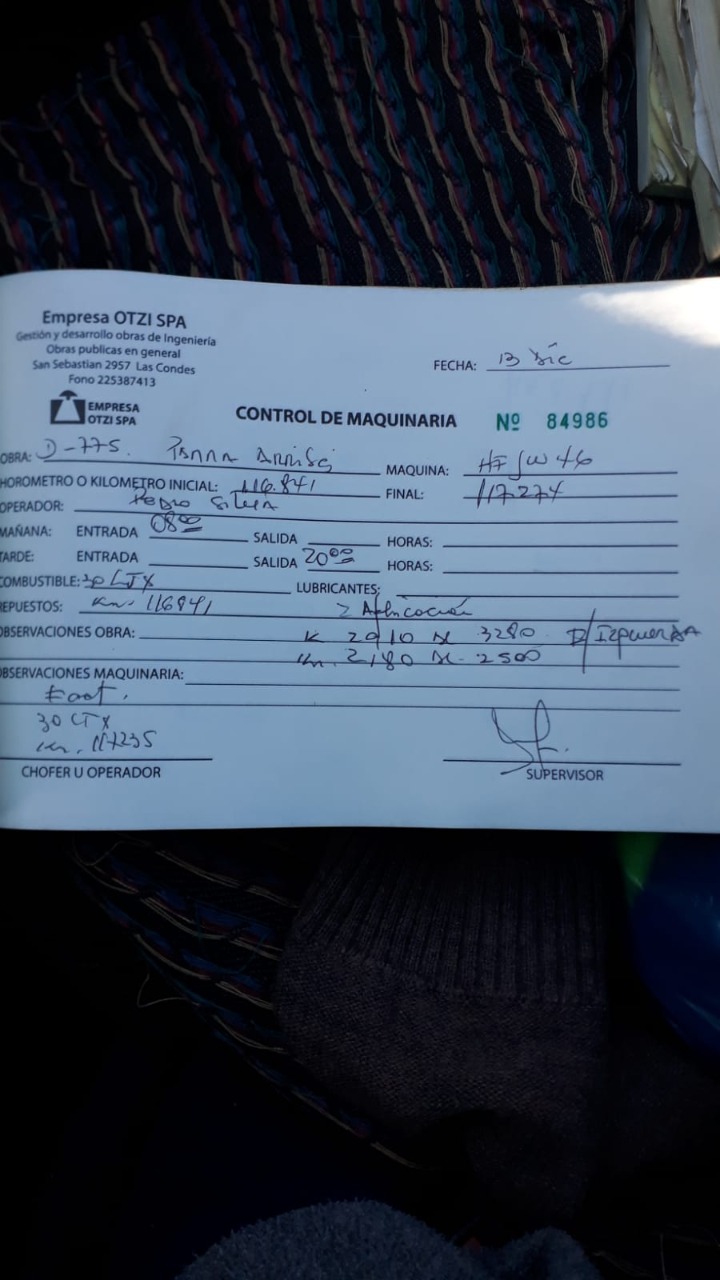 Empresa OTZI SPA
Gestión y desarrollo obras de Ingeniería
Obras publicas en general
San Sebastian 2957 Las Condes
Fono 225387413
FECHA: 13 Dic
EMPRESA
OTZI SPA
CONTROL DE MAQUINARIA Nº 84986
OBRA: D-775.
MAQUINA: HFJW46
HOROMETRO O KILOMETRO INICIAL: 116.841
FINAL: 117.274
OPERADOR: Pedro Silva
MAÑANA: ENTRADA 08:00 SALIDA HORAS:
TARDE: ENTRADA SALIDA 20:00 HORAS:
COMBUSTIBLE: 30 LTX LUBRICANTES:
REPUESTOS: Km. 116841 2 Aplicación
OBSERVACIONES OBRA: K 2910 3280 P/Izquierda
Km. 2,180 2500
OBSERVACIONES MAQUINARIA:
30 LTX
Km. 117235
CHOFER U OPERADOR
SUPERVISOR